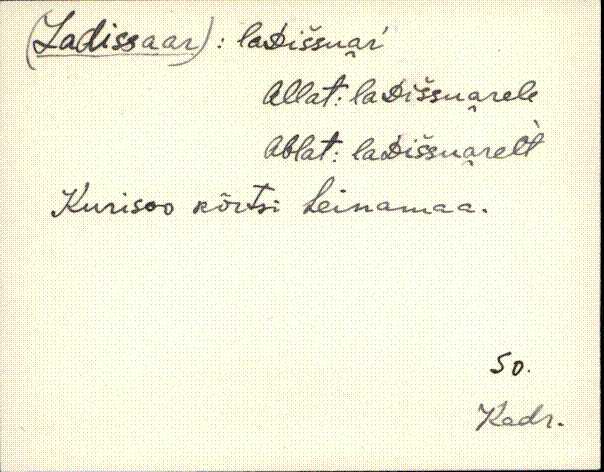 (Ladissaar): laDiššuari
Allat: laDiššuarele
Ablat: laDiššuarelt
Kurisoo kõrtsi heinamaa.
50.
Kadr.